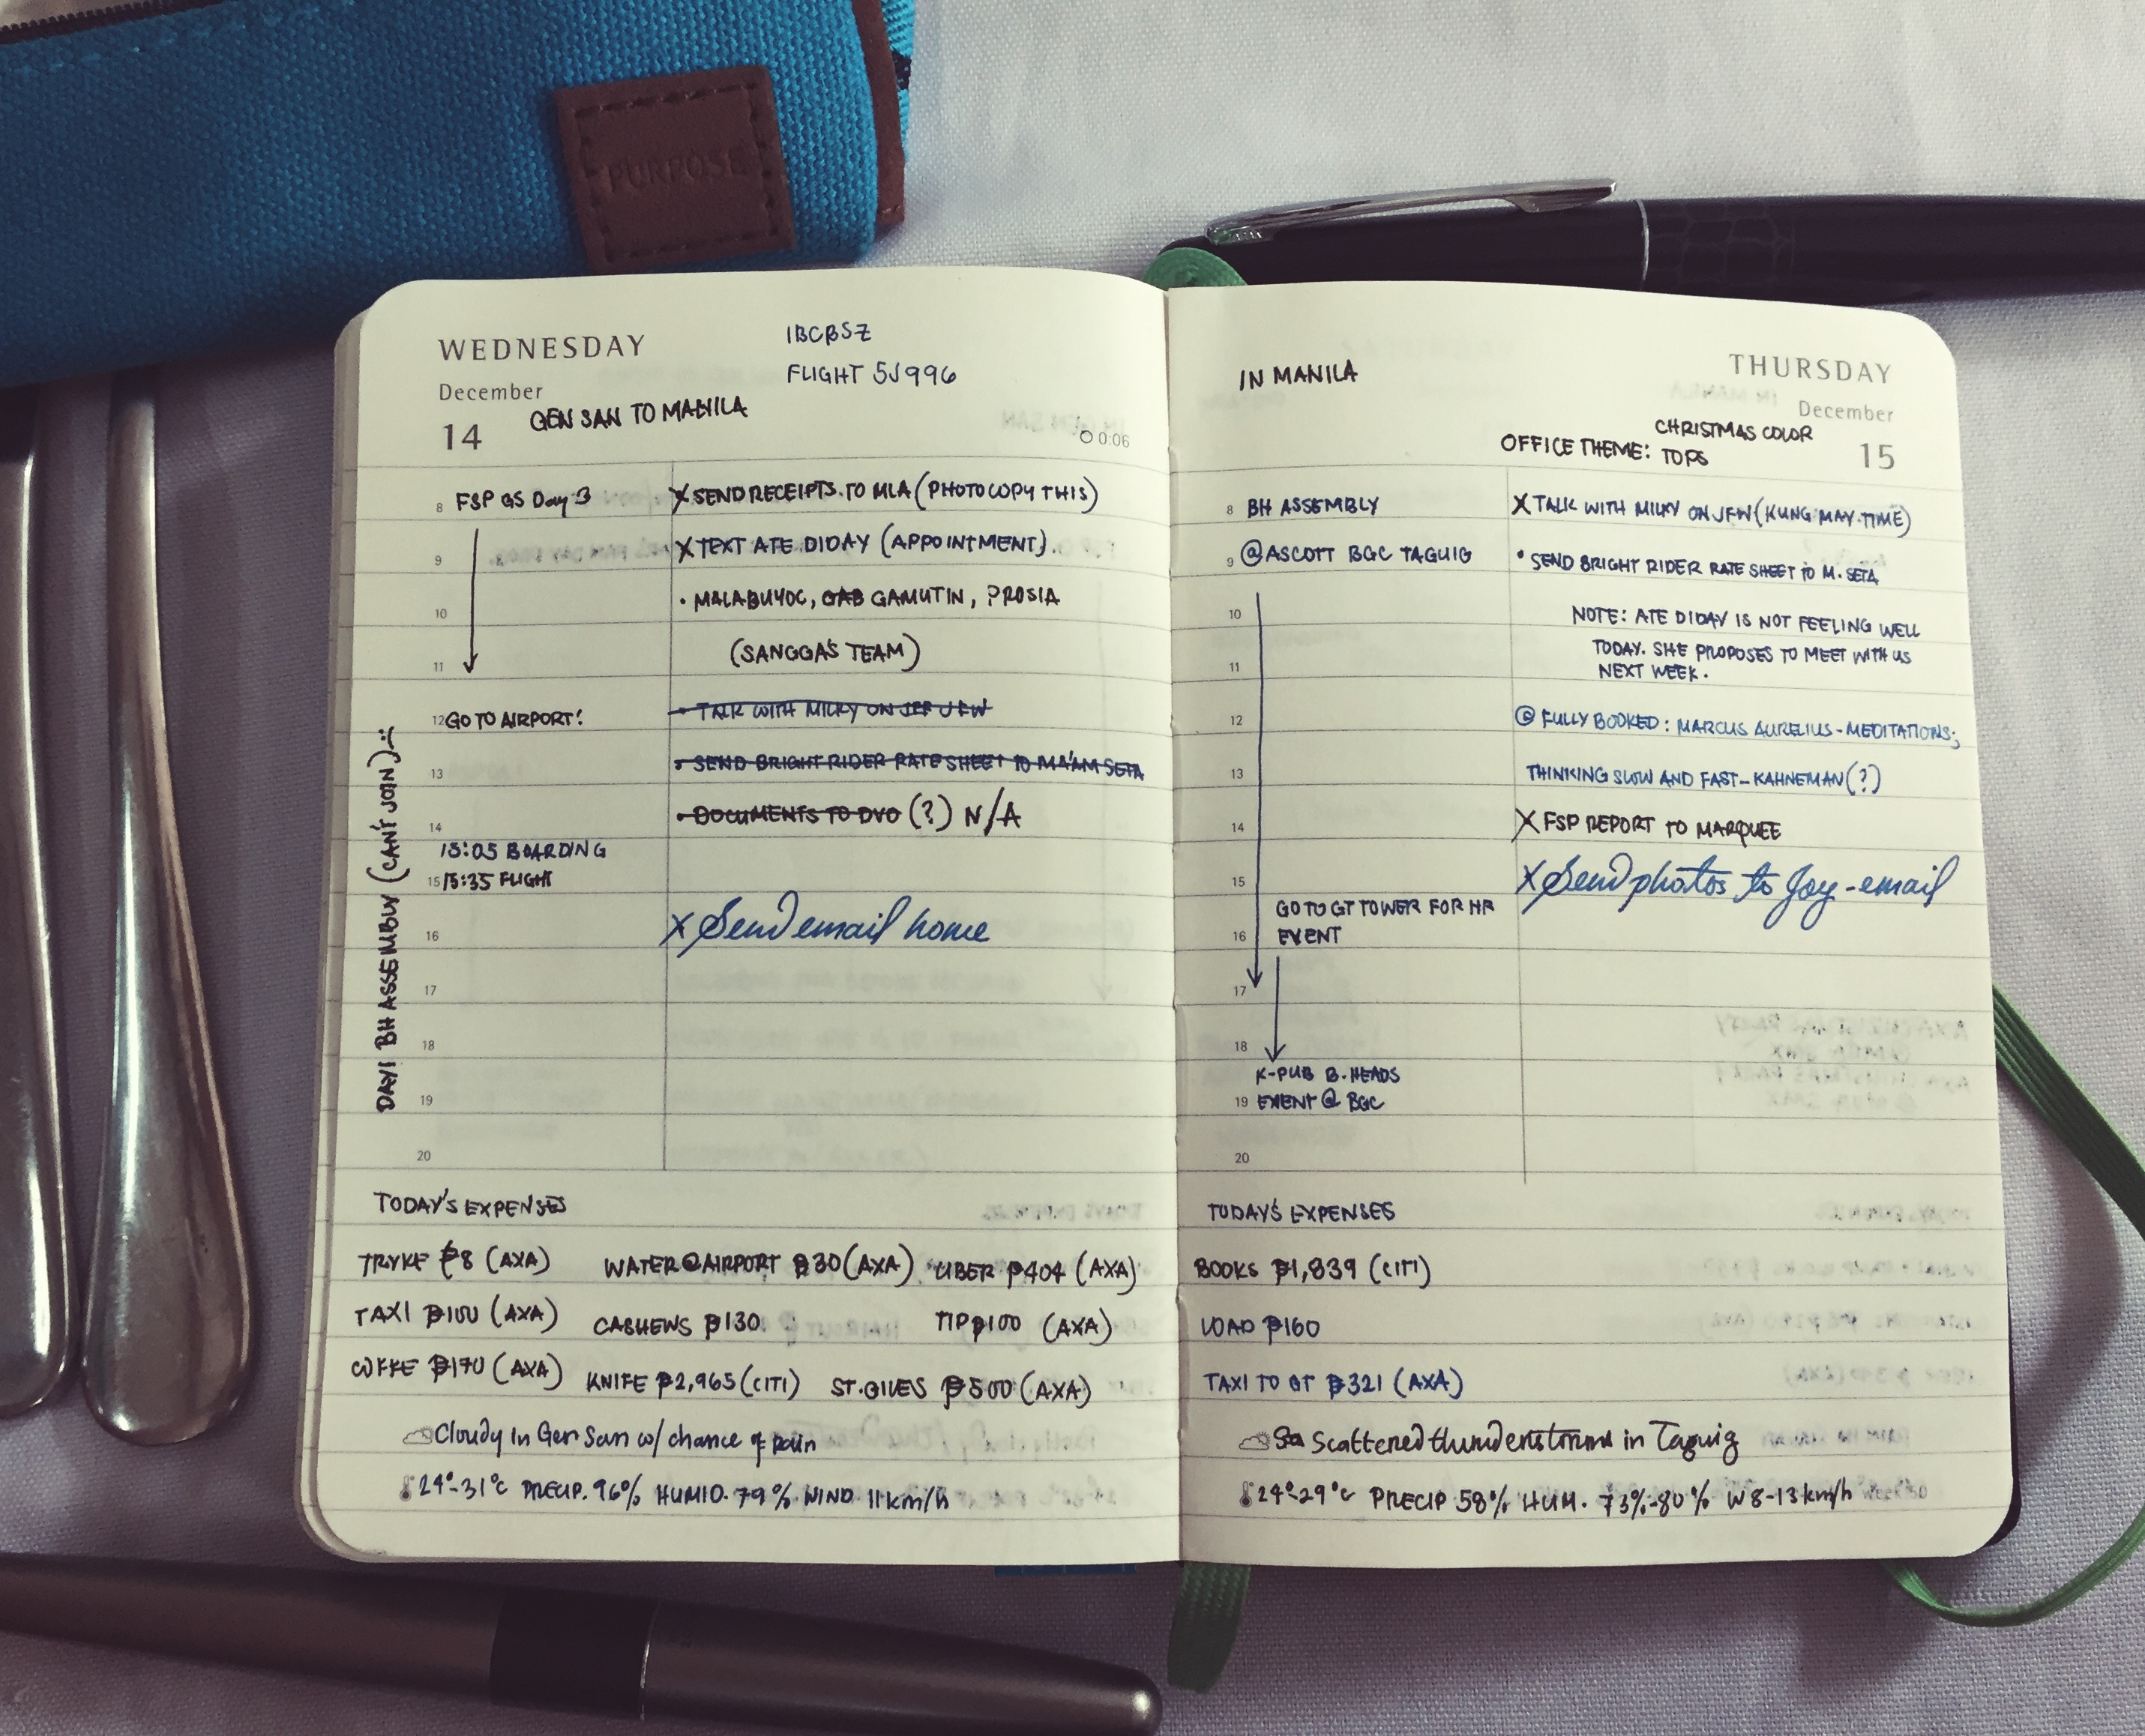 PURPOSE
WEDNESDAY
December
14
IBCBSZ
FLIGHT 5J996
GEN SAN TO MANILA
0:06
8 FSP GS Day 3
9
10
11
12 GO TO AIRPORT!
13
14
15:05 BOARDING
15 15:35 FLIGHT
16
17
18
19
20
DAY 1 BH ASSEMBLY (CAN'T JOIN) :(
X SEND RECEIPTS TO MLA (PHOTOCOPY THIS)
X TEXT ATE DIDAY (APPOINTMENT).
• MALABUYOC, GAB GAMUTIN, PROSIA
(SANGGA'S TEAM)
• TALK WITH MILKY ON JFF JFW
• SEND BRIGHT RIDER RATE SHEET TO MA'AM SETA
• DOCUMENTS TO DVO (?) N/A
X Send email home
TODAY'S EXPENSES
TRYKE ₱8 (AXA) WATER @ AIRPORT ₱30 (AXA) UBER ₱404 (AXA)
TAXI ₱100 (AXA) CASHEWS ₱130 TIP ₱100 (AXA)
COFFEE ₱170 (AXA) KNIFE ₱2,965 (CITI) ST. GILES ₱500 (AXA)
Cloudy in Gen San w/ chance of rain
24°-31°C PRECIP. 96% HUMID. 79% WIND 11km/h
IN MANILA
THURSDAY
December
15
OFFICE THEME: CHRISTMAS COLOR
TOPS
8 BH ASSEMBLY
9 @ASCOTT BGC TAGUIG
10
11
12
13
14
15
GO TO GT TOWER FOR HR
16 EVENT
17
18
K-PUB B. HEADS
19 EVENT @ BGC
20
X TALK WITH MILKY ON JFW (KUNG MAY TIME)
• SEND BRIGHT RIDER RATE SHEET TO M. SETA
NOTE: ATE DIDAY IS NOT FEELING WELL
TODAY. SHE PROPOSES TO MEET WITH US
NEXT WEEK.
@ FULLY BOOKED: MARCUS AURELIUS - MEDITATIONS;
THINKING SLOW AND FAST - KAHNEMAN (?)
X FSP REPORT TO MARQUEE
X Send photos to Joy - email
TODAY'S EXPENSES
BOOKS ₱1,839 (CITI)
LOAD ₱160
TAXI TO GT ₱321 (AXA)
Sa Scattered thunderstorms in Taguig
24°-29°C PRECIP 58% HUM. 73%-80% W 8-13 km/h